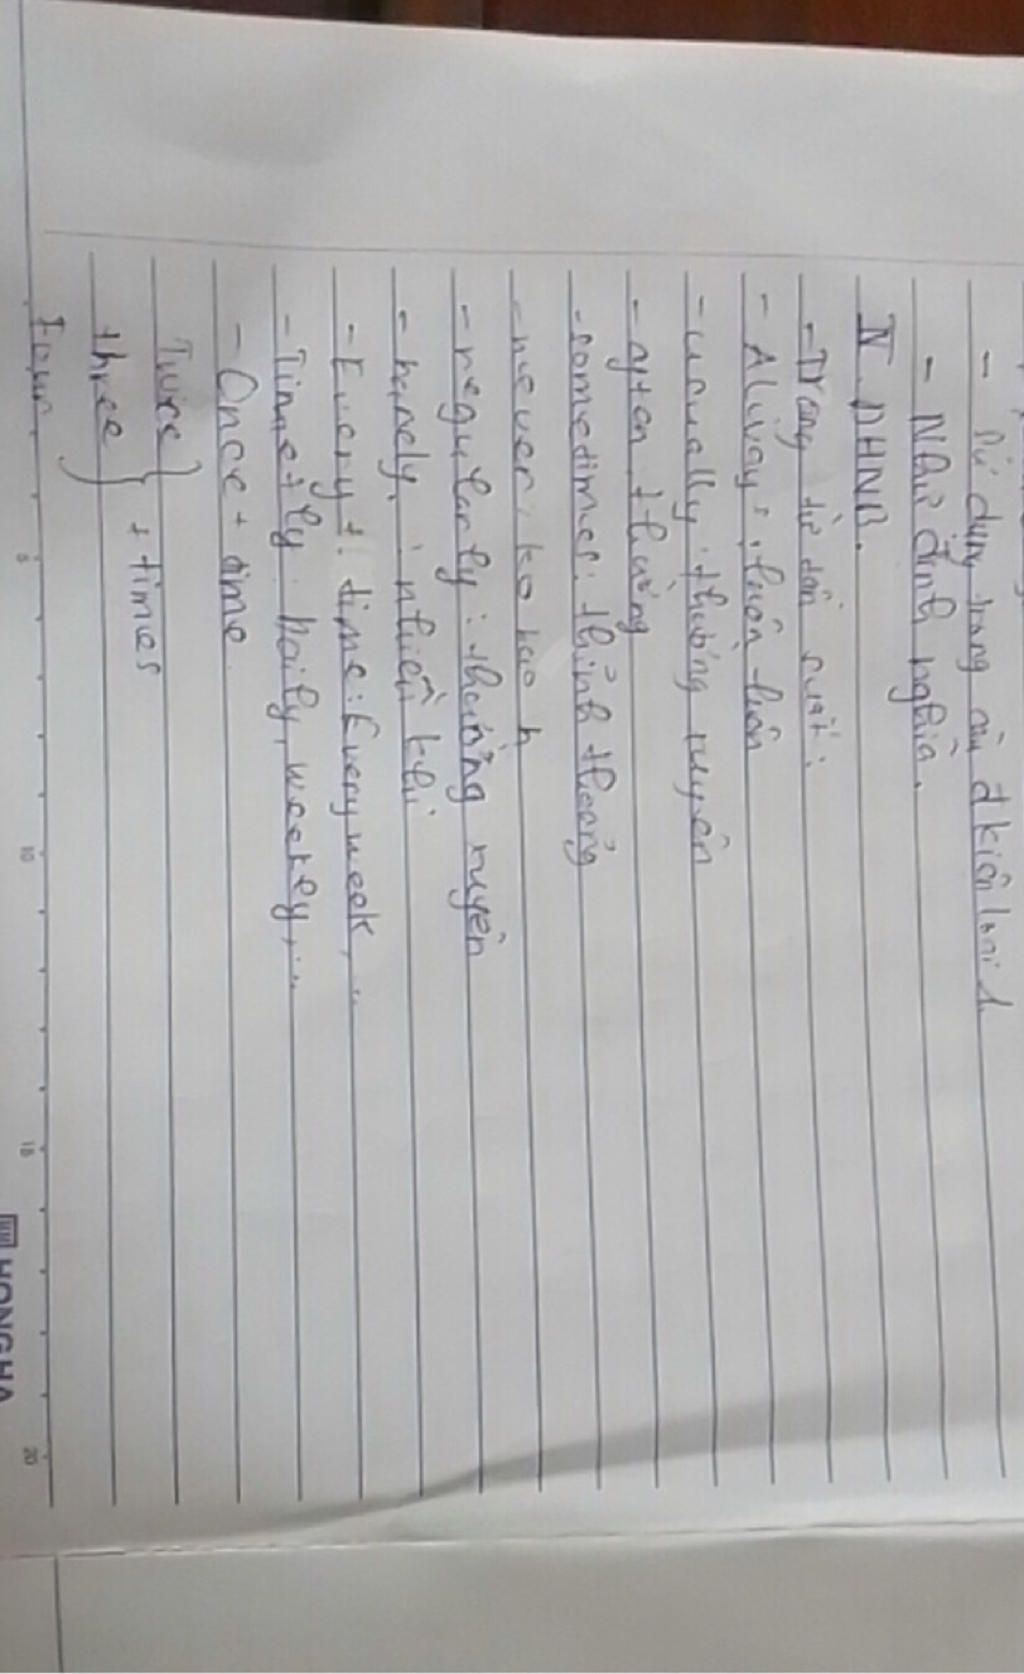 - Sử dụng trong câu đkiện loại 1
- Nhữ định nghĩa.
IV. DHNB.
- Trạng từ tần suất:
- Always: luôn luôn
- usually: thường xuyên
- often: thường
- sometimes: thỉnh thoảng
- never: ko bao h
- regularly: thường xuyên
- rarely: nhiều khi
- Every + time: Every week, ...
- Time + ly: Daily, weekly, ...
- Once + time
Twice
three } + times
Four
5 10 15 20
HONG HA